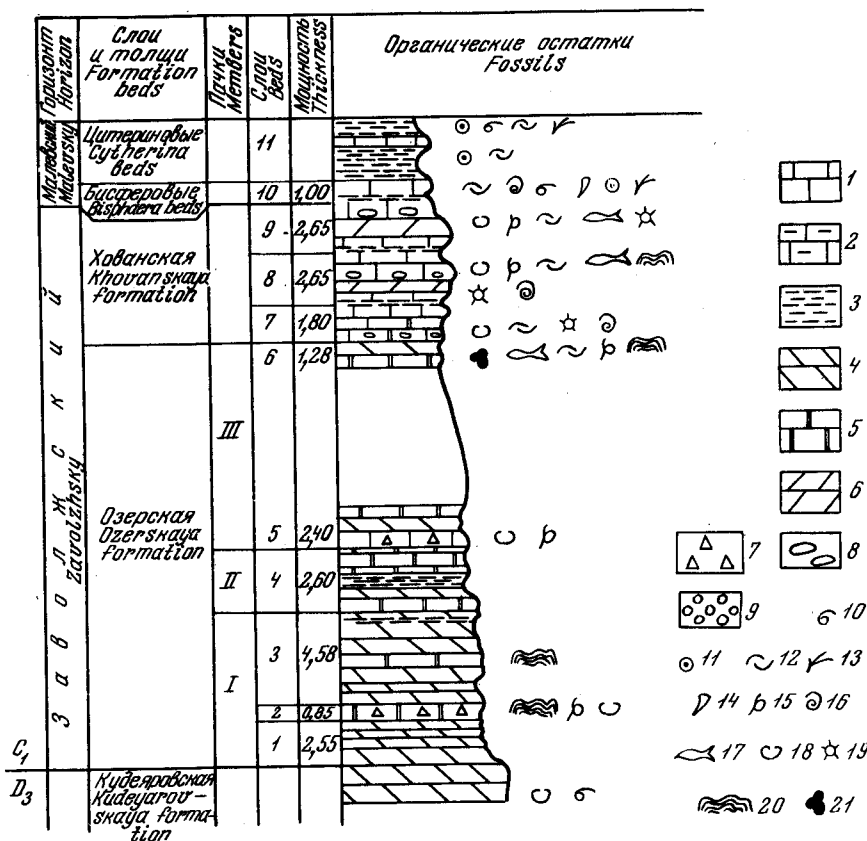 Горизонт
Horizon
Слои
и толщи
Formation
beds
Пачки
Members
Слои
Beds
Мощность
Thickness
Органические остатки
Fossils
Малевский
Malevsky
Цитериновые
Cytherina
beds
11
Бисферовые
Bisphaera beds
10 1,00
Заволжский
Zavolzhsky
Хованская
Khovanskaya
formation
9 2,65
8 2,65
7 1,80
Озерская
Ozerskaya
formation
III
6 1,28
5 2,40
II
4 2,60
I
3 4,58
2 0,85
1 2,55
C1
D3
Кудеяровская
Kudeyarov-
skaya forma-
tion
1
2
3
4
5
6
7 8
9 10
11 12 13
14 15 16
17 18 19
20 21